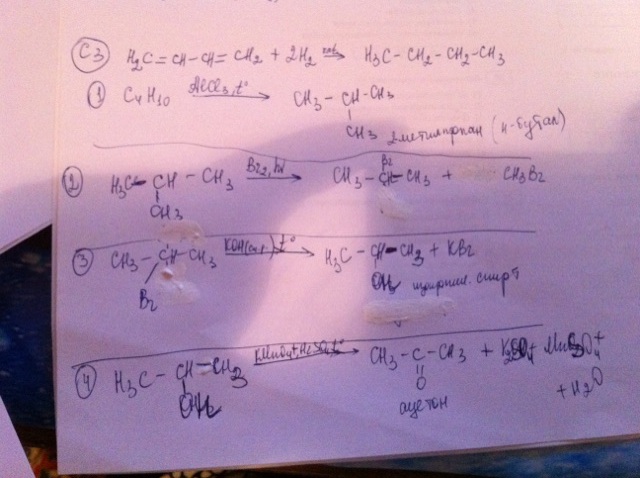 С3 H2C=CH-CH=CH2 + 2H2 → H3C-CH2-CH2-CH3
1 C4H10 AlCl3, t° → CH3-CH-CH3
CH3 2-метилпропан (н-бутан)
2 H3C-CH-CH3 Br2, hν → CH3-CH-CH3 + CH3Br
CH3
Br
3 CH3-CH-CH3 KOH t° → H3C-CH-CH3 + KBr
Br
OH спирт
4 H3C-CH-CH3 KMnO4+H2SO4, t° → CH3-C-CH3 + K2SO4 + MnSO4 +
OH O + H2O
ацетон